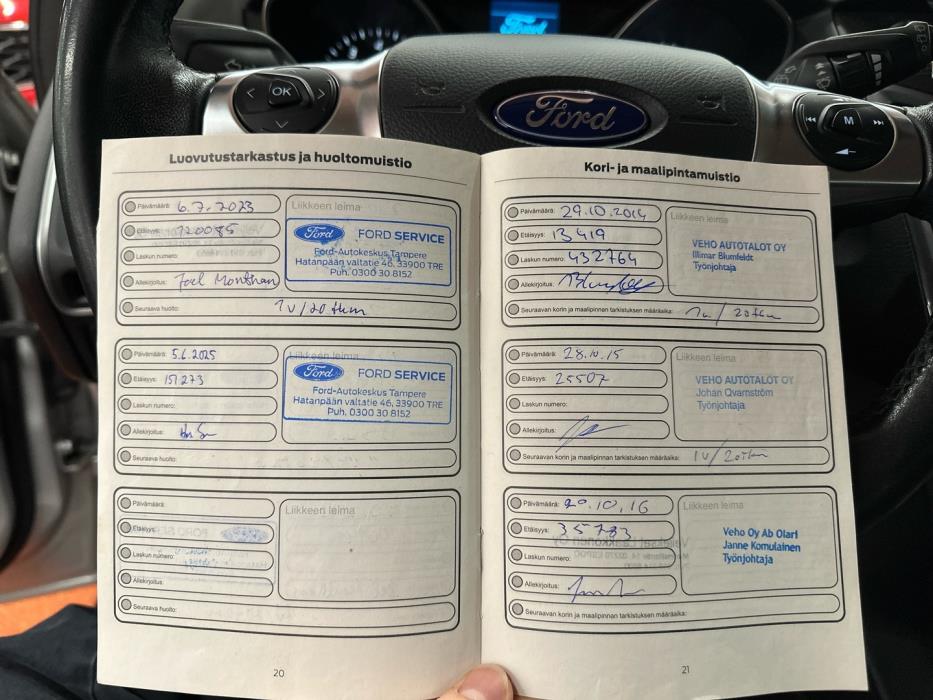 Ford
OK
M
Ford
Luovutustarkastus ja huoltomuistio
Päivämäärä: 6.7.2023
Etäisyys: 120085
Laskun numero:
Allekirjoitus: Joel Monthan
Seuraava huolto: 1v/20tkm
Liikkeen leima
Ford FORD SERVICE
Ford-Autokeskus Tampere
Hatanpään valtatie 46, 33900 TRE
Puh. 0300 30 8152
Päivämäärä: 5.6.2025
Etäisyys: 151273
Laskun numero:
Allekirjoitus:
Seuraava huolto:
Liikkeen leima
Ford FORD SERVICE
Ford-Autokeskus Tampere
Hatanpään valtatie 46, 33900 TRE
Puh. 0300 30 8152
Päivämäärä:
Etäisyys:
Laskun numero:
Allekirjoitus:
Seuraava huolto:
Liikkeen leima
20
Kori- ja maalipintamuistio
Päivämäärä: 29.10.2014
Etäisyys: 13419
Laskun numero: 432764
Allekirjoitus:
Seuraavan korin ja maalipinnan tarkistuksen määräaika: 1v/20tkm
Liikkeen leima
VEHO AUTOTALOT OY
Illimar Blumfeldt
Työnjohtaja
Päivämäärä: 28.10.15
Etäisyys: 25507
Laskun numero:
Allekirjoitus:
Seuraavan korin ja maalipinnan tarkistuksen määräaika: 1v/20tkm
Liikkeen leima
VEHO AUTOTALOT OY
Johan Qvarnström
Työnjohtaja
Päivämäärä: 20.10.16
Etäisyys: 35783
Laskun numero:
Allekirjoitus:
Seuraavan korin ja maalipinnan tarkistuksen määräaika:
Liikkeen leima
Veho Oy Ab Olari
Janne Komulainen
Työnjohtaja
21